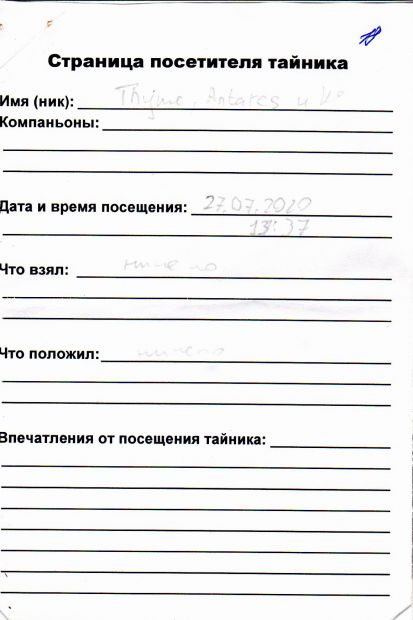 Страница посетителя тайника
Имя (ник): Thyme, Antares и К°
Компаньоны:
Дата и время посещения: 27.07.2020
13:37
Что взял: ничего
Что положил: ничего
Впечатления от посещения тайника: